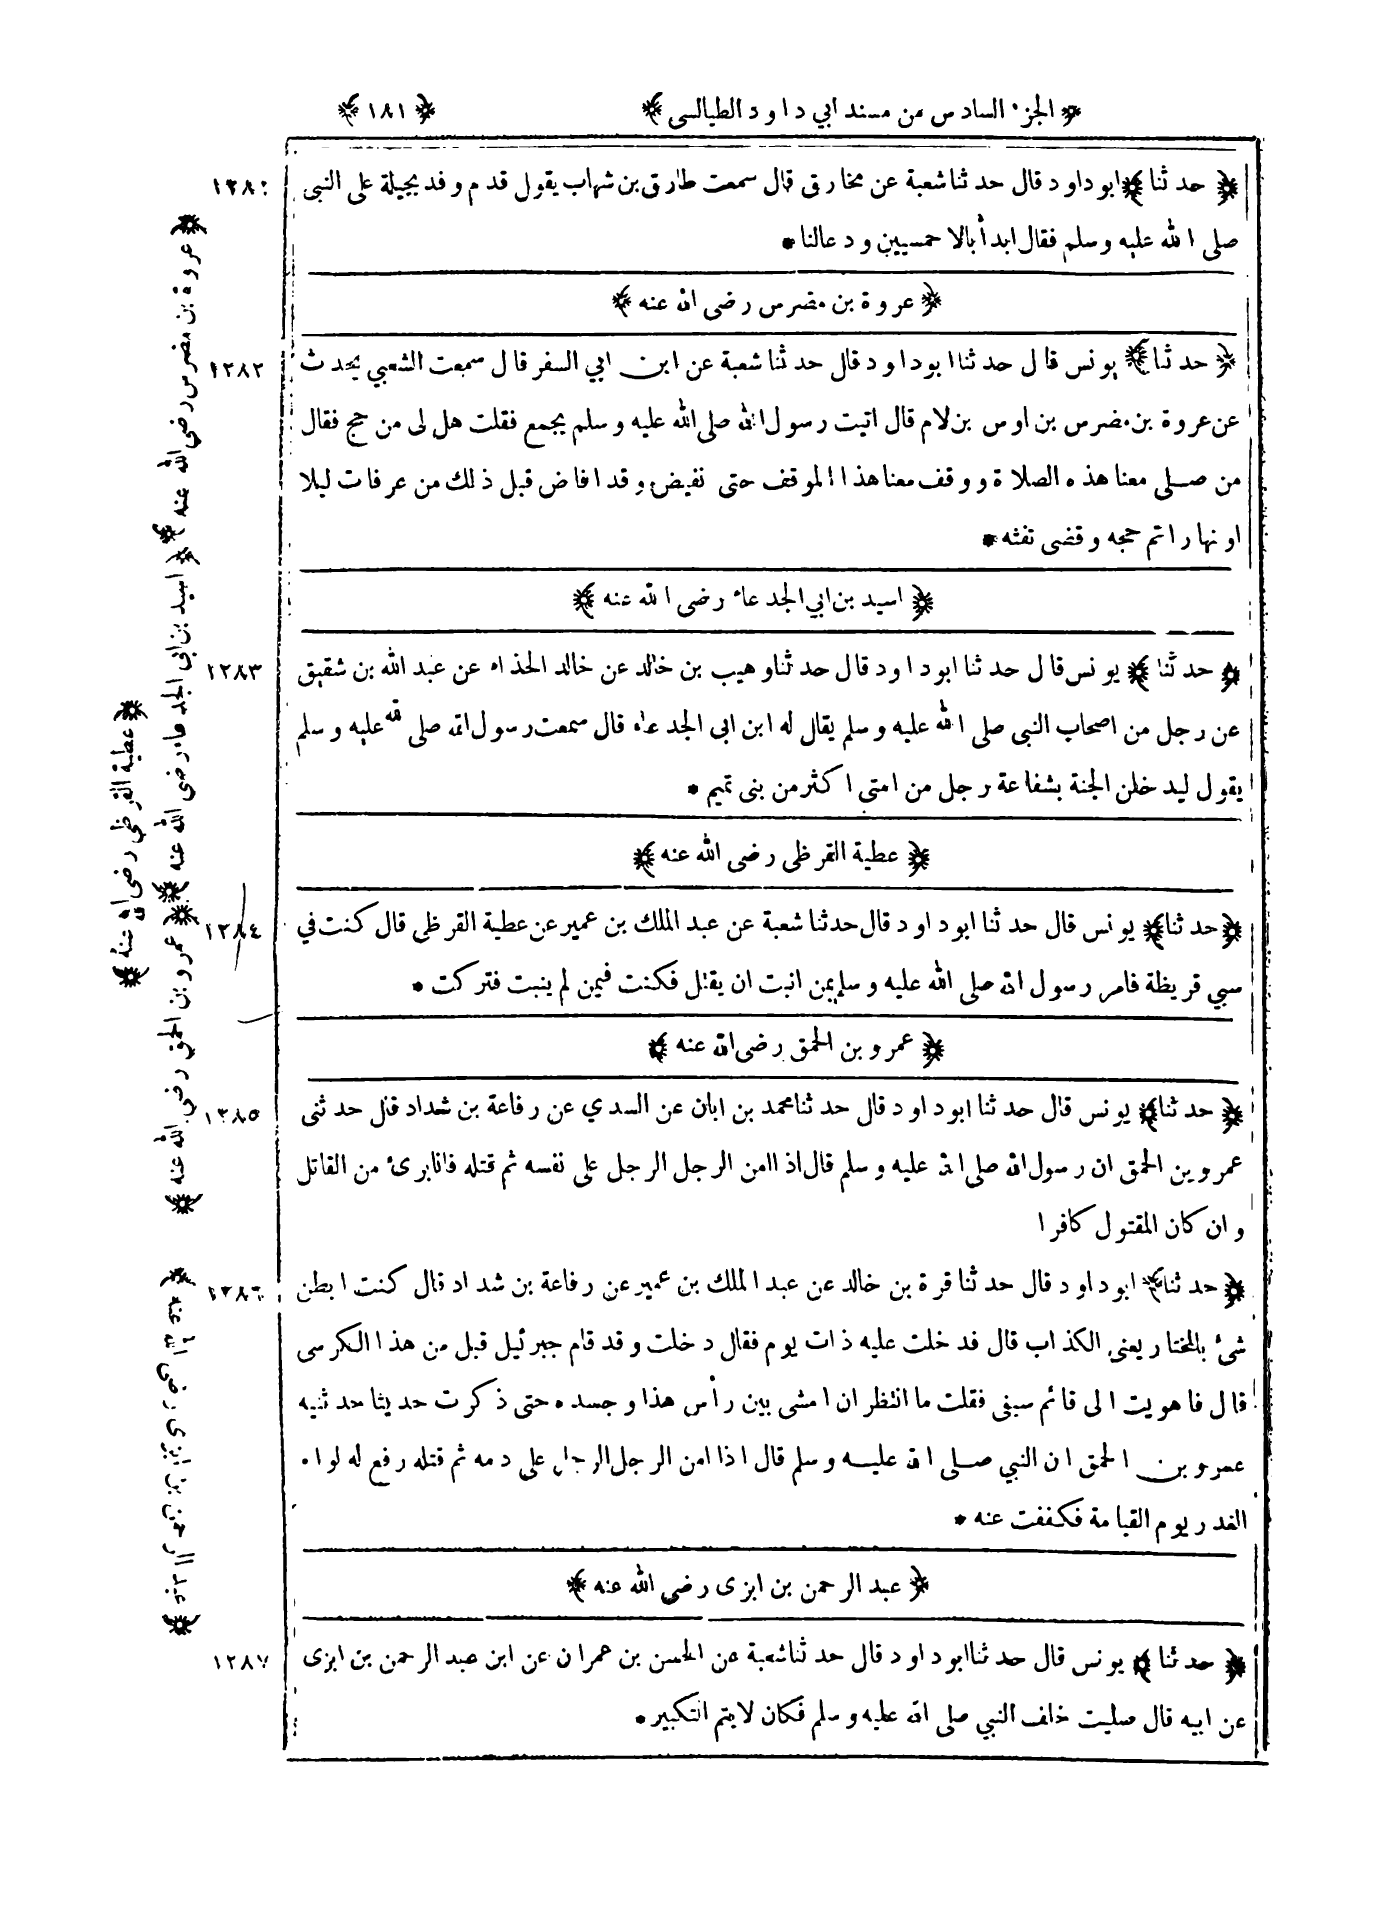 ﴿ الجزء السادس من مسند ابي داود الطيالسى ﴾ ﴿ ١٨١ ﴾
﴿ حدثنا ﴾ ابوداود قال حدثنا شعبة عن مخارق قال سمعت طارق بن شهاب يقول قدم وفد بجيلة على النبى
صلى الله عليه وسلم فقال ابدأ بالاحمسيين ودعالنا *
﴿ عروة بن مضرس رضى الله عنه ﴾
١٢٨٢ ﴿ حدثنا ﴾ يونس قال حدثنا ابوداود قال حدثنا شعبة عن ابن ابي السفر قال سمعت الشعبي يحدث
عن عروة بن مضرس بن اوس بن لام قال اتيت رسول الله صلى الله عليه وسلم بجمع فقلت هل لى من حج فقال
من صلى معنا هذه الصلاة ووقف معنا هذا الموقف حتى نفيض وقد افاض قبل ذلك من عرفات ليلا
او نهارا تم حجه وقضى تفثه *
﴿ اسيد بن ابي الجدعاء رضى الله عنه ﴾
١٢٨٣ ﴿ حدثنا ﴾ يونس قال حدثنا ابوداود قال حدثنا وهيب بن خالد عن خالد الحذاء عن عبد الله بن شقيق
عن رجل من اصحاب النبى صلى الله عليه وسلم يقال له ابن ابى الجدعاء قال سمعت رسول الله صلى الله عليه وسلم
يقول ليدخلن الجنة بشفاعة رجل من امتى اكثر من بنى تميم *
﴿ عطية القرظى رضى الله عنه ﴾
١٢٨٤ ﴿ حدثنا ﴾ يونس قال حدثنا ابوداود قال حدثنا شعبة عن عبد الملك بن عمير عن عطية القرظى قال كنت في
سبي قريظة فامر رسول الله صلى الله عليه وسلم بمن انبت ان يقتل فكنت فيمن لم ينبت فتركت *
﴿ عمرو بن الحمق رضى الله عنه ﴾
١٢٨٥ ﴿ حدثنا ﴾ يونس قال حدثنا ابوداود قال حدثنا محمد بن ابان عن السدي عن رفاعة بن شداد قال حدثنى
عمرو بن الحمق ان رسول الله صلى الله عليه وسلم قال اذا امن الرجل الرجل على نفسه ثم قتله فانا برئ من القاتل
وان كان المقتول كافرا
١٢٨٦ ﴿ حدثنا ﴾ ابوداود قال حدثنا قرة بن خالد عن عبد الملك بن عمير عن رفاعة بن شداد قال كنت ابطن
شئ بالمختار يعنى الكذاب قال فدخلت عليه ذات يوم فقال دخلت وقد قام جبرئيل قبل من هذا الكرسى
قال فاهويت الى قائم سيفى فقلت ما انتظر ان امشى بين رأس هذا وجسده حتى ذكرت حديثا حدثنيه
عمرو بن الحمق ان النبي صلى الله عليه وسلم قال اذا امن الرجل الرجل على دمه ثم قتله رفع له لواء
الغدر يوم القيامة فكففت عنه *
﴿ عبد الرحمن بن ابزى رضى الله عنه ﴾
١٢٨٧ ﴿ حدثنا ﴾ يونس قال حدثنا ابوداود قال حدثنا شعبة عن الحسن بن عمران عن ابن عبد الرحمن بن ابزى
عن ابيه قال صليت خلف النبي صلى الله عليه وسلم فكان لا يتم التكبير *
﴿ عروة بن مضرس رضى الله عنه ﴾ ﴿ اسيد بن ابى الجدعاء رضى الله عنه ﴾ ﴿ عمرو بن الحمق رضى الله عنه ﴾
﴿ عطية القرظى رضى الله عنه ﴾
﴿ عبد الرحمن بن ابزى رضى الله عنه ﴾